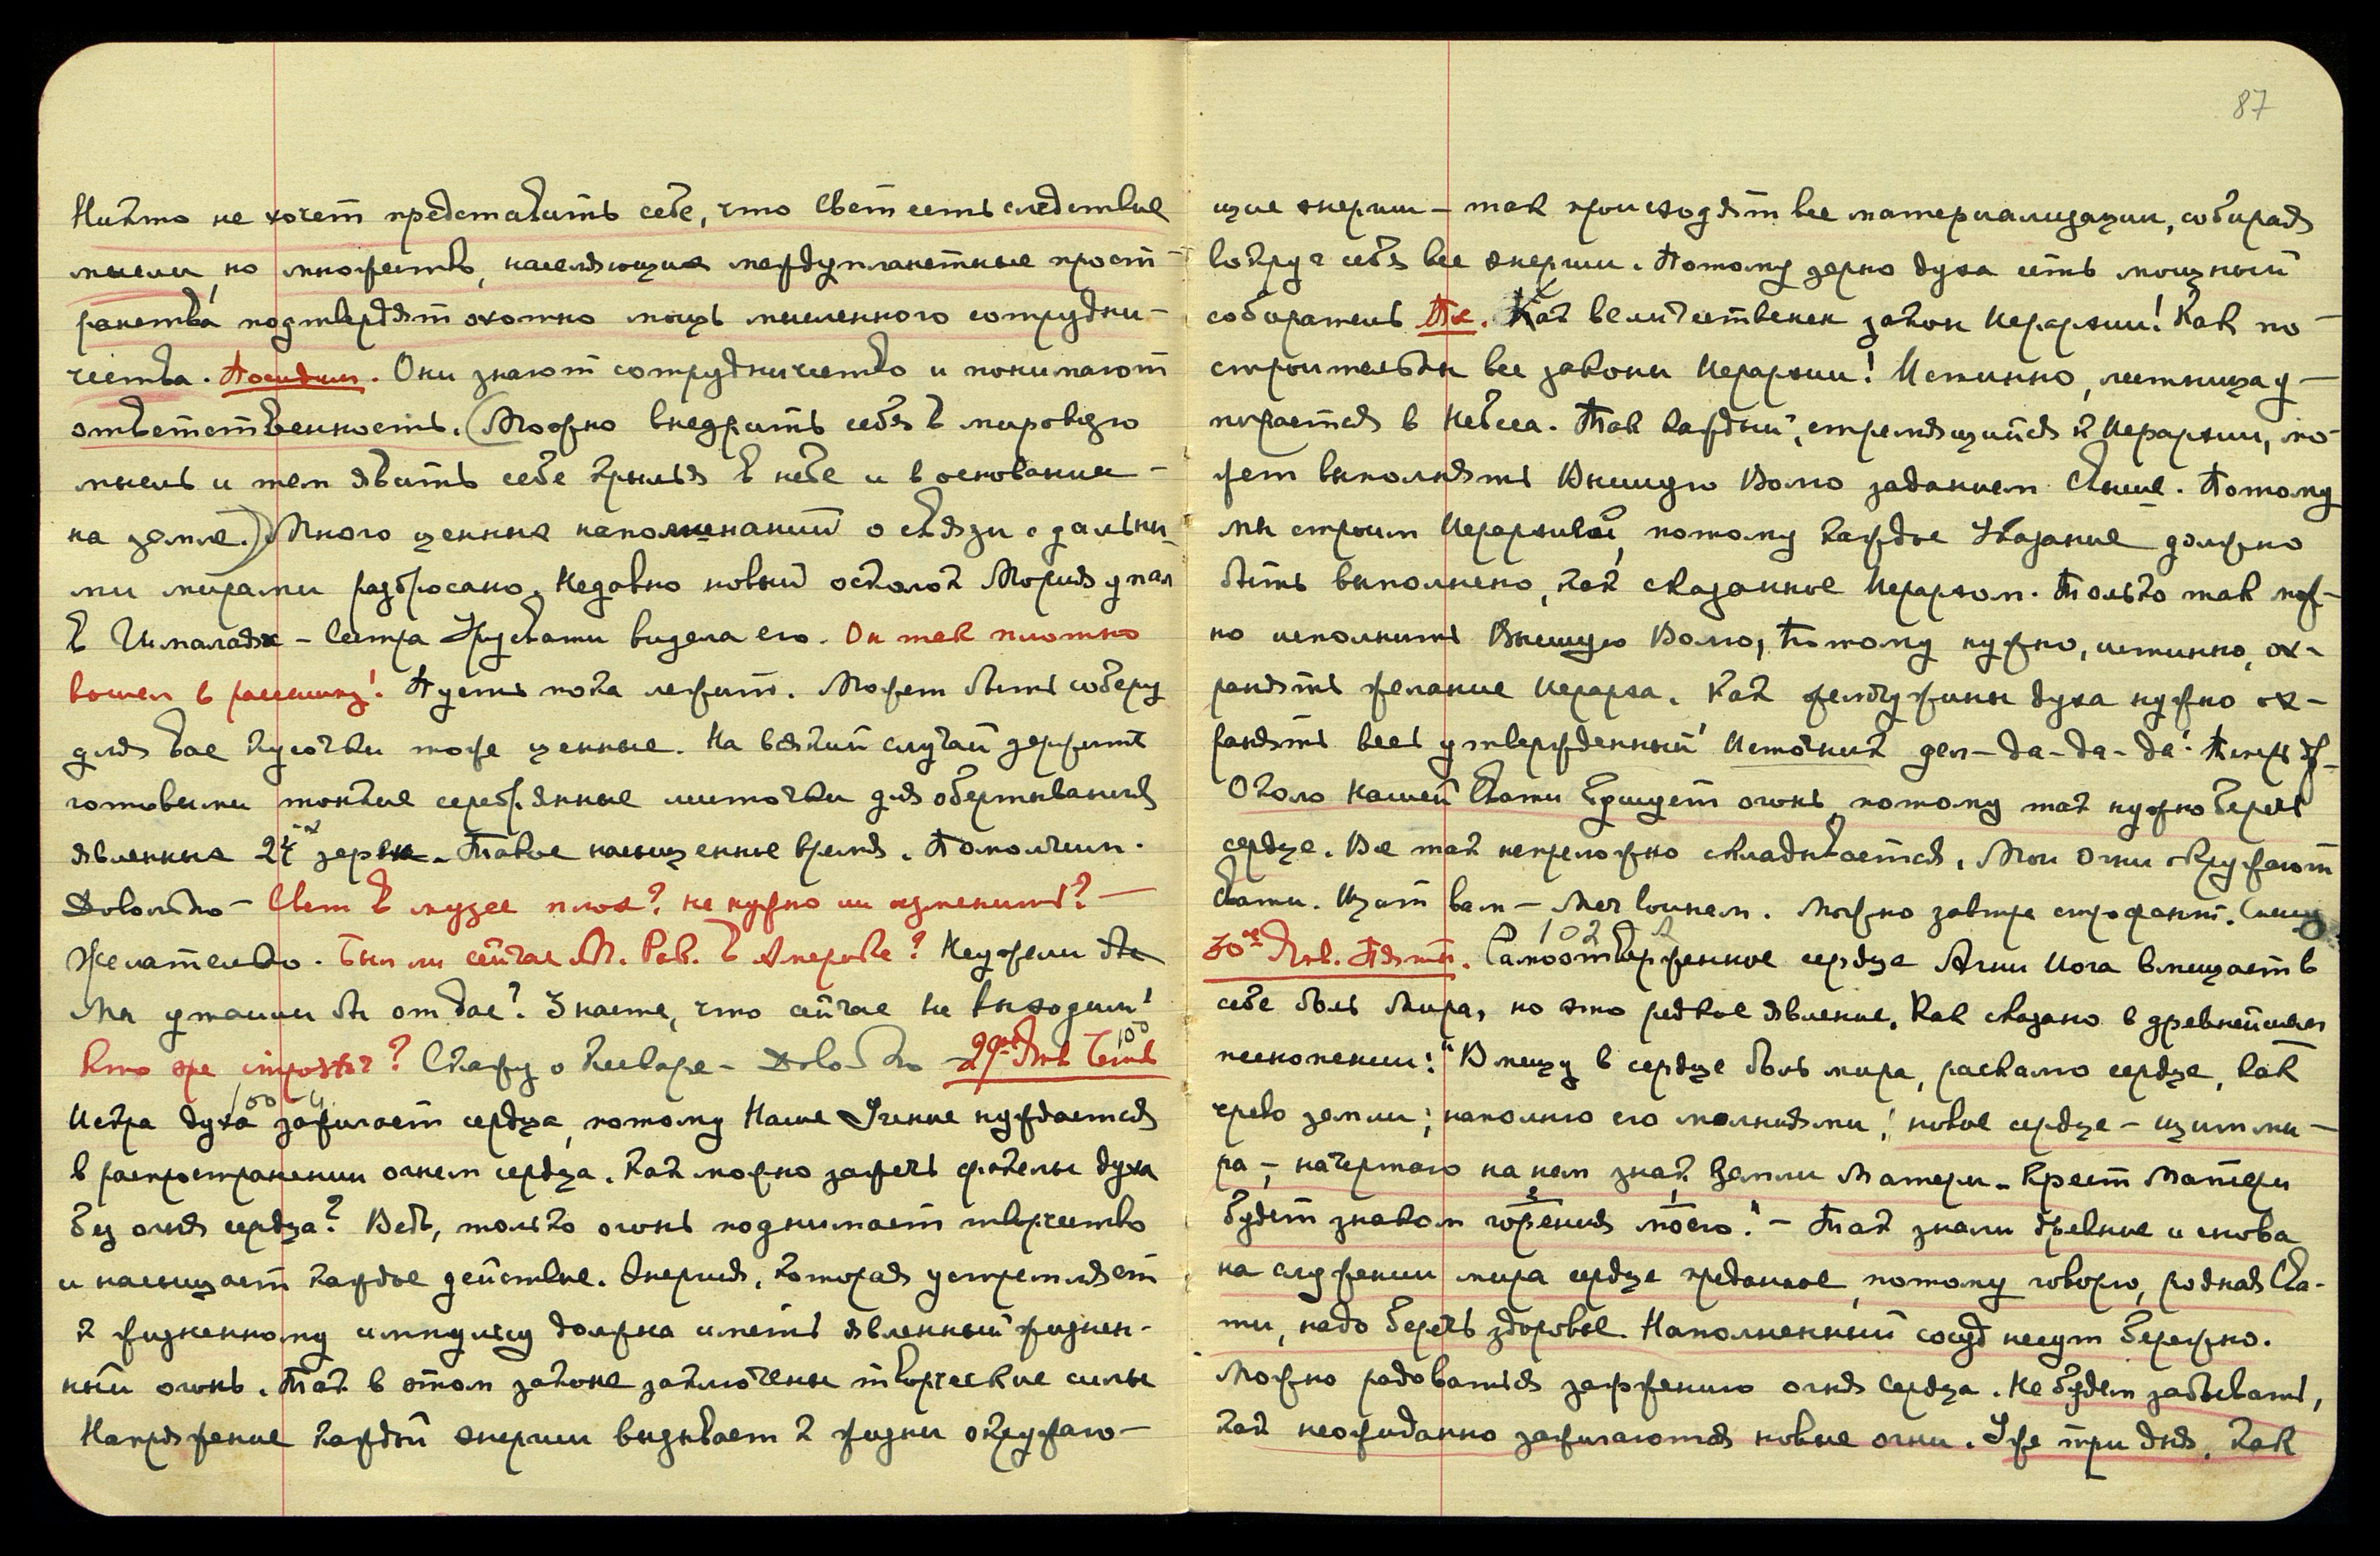 Никто не хочет представить себе, что Свет есть следствие
мысли, но множество, населяющих междупланетные прост-
ранства подтвердят охотно мощь мысленного сотрудни-
чества. Посидим. Они знают сотрудничество и понимают
ответственность. (Можно внедрить себя в мировую
мысль и тем явить себе крылья в небе и в основание -
на земле.) Много ценных напоминаний о связи с дальни-
ми мирами разбросано. Недавно новый осколок Мория упал
в Гималаях - Сестра видела его. Он так плотно
вошел в расщелину! Пусть пока лежит. Может быть соберу
для вас кусочки тоже ценные. На всякий случай держите
готовыми тонкие серебряные листочки для обертывания
явленных 24х зерен. Такое насыщенное время. Помолчим.
Довольно - Свет в музее плох? не нужно ли изменить? -
Желательно. Был ли сейчас М. Рак. в Америке? Неужели
Мы утаили бы от вас? Знаете, что сейчас Не выходим!
Кто же ? Скажу о Январе - Довольно - 29ое Янв Четв 100
100 - 4.
Искра духа зажигает сердца, потому Наше Учение нуждается
в распространении огнем сердца. Как можно зажечь факелы духа
без огня сердца? Ведь, только огонь поднимает творчество
и насыщает каждое действие. Энергия, которая устремляет
к жизненному импульсу должна иметь явленный жизнен-
ный огонь. Так в этом законе заключены творческие силы
Напряжение каждой энергии вызывает к жизни окружаю-
87
щие энергии - так происходят все материализации, собирая
вокруг себя все энергии. Потому зерно духа есть мощный
собиратель. Как величественен закон Иерархии! Как по-
строительны все законы Иерархии! Истинно, лестница у-
пирается в Небеса. Так каждый, стремящийся к Иерархии, мо-
жет выполнять Высшую Волю заданием Свыше. Потому
мы строим Иерархией, потому каждое Указание должно
быть выполнено, как сказанное Иерархом. Только так мож-
но исполнить Высшую Волю, Потому нужно, истинно, ох-
ранять желание Иерарха. Как жемчужины духа нужно ох-
ранять весь утвержденный Источник дел - да - да - да!
Около Нашей Свати бушует огонь, потому так нужно беречь
сердце. Все так непреложно складывается. Мои Огни окружают
Свати. Щит вам - Меч воинам. Можно завтра строфант.
30ое Янв. Пятн. 102 Самоотверженное сердце Агни Йога вмещает в
себе боль Мира, но это редкое явление. Как сказано в древнейшем
песнопении: "Вмещу в сердце боль мира, раскалю сердце, как
чрево земли; наполню его молниями; новое сердце - щит ми-
ра - начертаю на нем знак Земли Матери - Крест Матери
будет знаком горения моего." - Так знали древние и снова
на служении мира сердце преданное, потому говорю, родная Сва-
ти, надо беречь здоровье. Наполненный сосуд несут бережно.
Можно радоваться зажжению огня Сердца. Не будем забывать,
как неожиданно зажигаются новые огни. Уже три дня, как